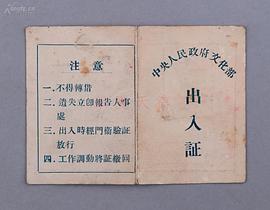 注意
一．不得轉借
二．遺失立卽報告人事
處
三．出入時經門衛驗証
放行
四．工作調動將証繳回
中央人民政府文化部
出入証